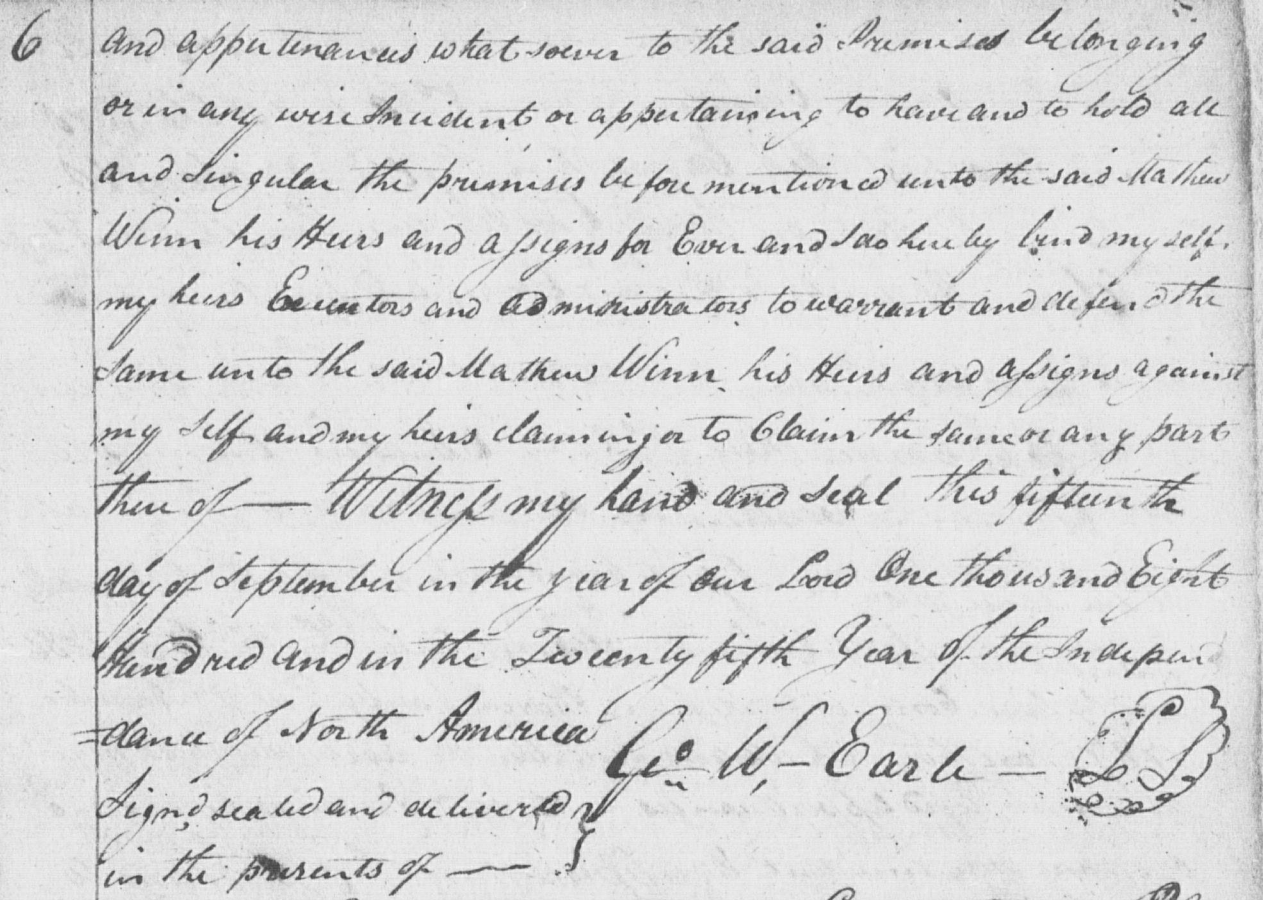 6
and appurtenances whatsoever to the said Premises belonging
or in any wise Incident or appertaining to have and to hold all
and Singular the premises before mentioned unto the said Mathew
Winn his Heirs and assigns for Ever and I do hereby bind my self,
my heirs Executors and administrators to warrant and defend the
Same unto the said Mathew Winn his Heirs and assigns against
my Self and my heirs claiming or to Claim the same or any part
there of — Witness my hand and Seal this fifteenth
day of September in the year of our Lord One thousand Eight
Hundred and in the Tweenty fifth Year of the Indepen
=dance of North America
Geo W,— Earle — LS
Signd sealed and delivered }
in the presents of —